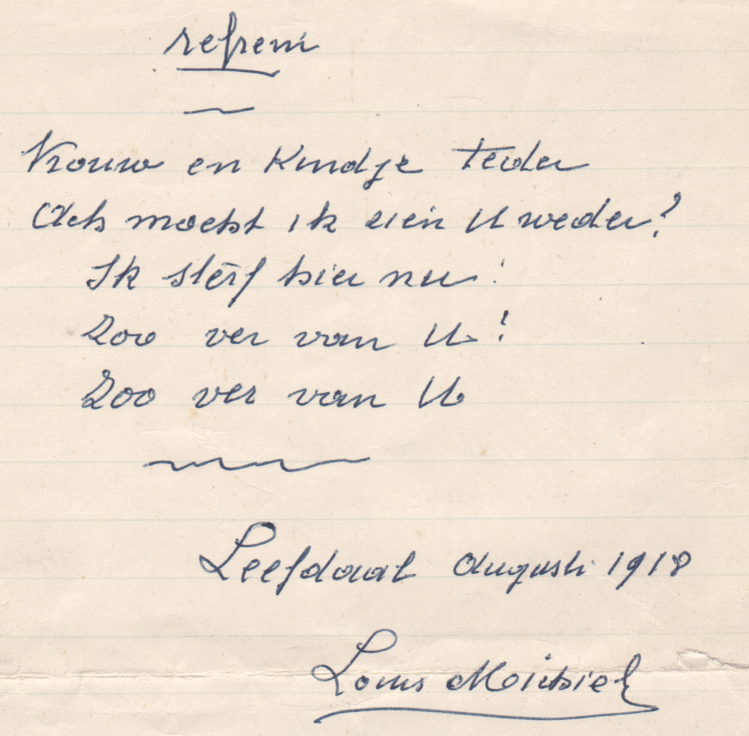 refrein
Vrouw en Kindje teder
Ach mocht ik zien U weder?
Ik sterf hier nu!
Zoo ver van U!
Zoo ver van U
Leefdaal Augusti 1918
Louis Michiel